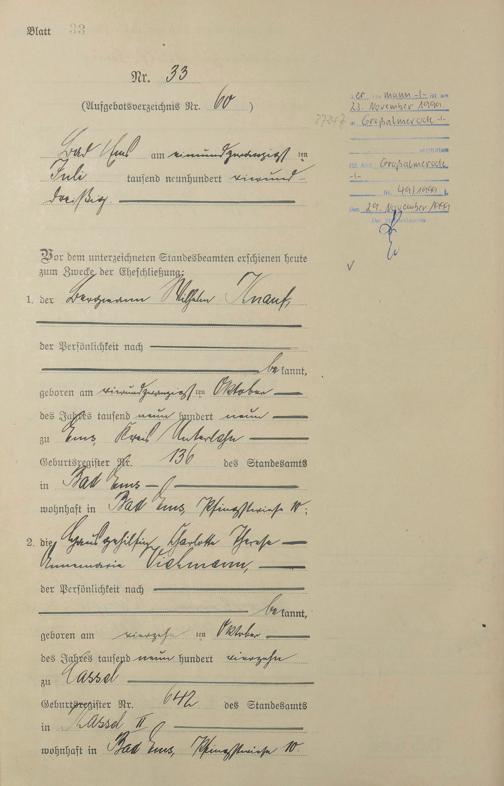 Blatt 33
Nr. 33
(Aufgebotsverzeichnis Nr. 60)
Bad Ems am einundzwanzigsten
Juli tausend neunhundert vierund-
dreißig.
Vor dem unterzeichneten Standesbeamten erschienen heute
zum Zwecke der Eheschließung:
1. der Bergmann Wilhelm Knauf,
der Persönlichkeit nach
bekannt,
geboren am vierundzwanzigsten Oktober
des Jahres tausend neun hundert neun
zu Ems Kreis Unterlahn
Geburtsregister Nr. 136 des Standesamts
in Bad Ems
wohnhaft in Bad Ems, Pfingstwiese 10;
2. die Hausgehilfin Charlotte Therese
Annemarie Viehmann,
der Persönlichkeit nach
bekannt,
geboren am vierzehnten Oktober
des Jahres tausend neun hundert vierzehn
zu Cassel
Geburtsregister Nr. 642 des Standesamts
in Kassel II
wohnhaft in Bad Ems, Pfingstwiese 10.
mann -/- ist am
23. November 1999
in Großalmerode -/-
verstorben
Großalmerode
-/-
Nr. 49/1999
Den 29. November 1999